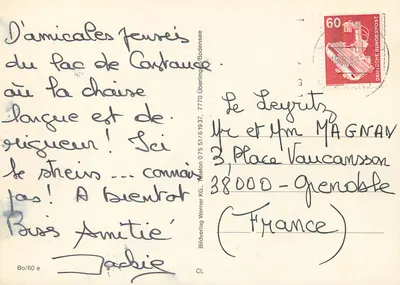 D'amicales pensées
du lac de Constance
où la chaise
longue est de
rigueur ! Ici
le stress ... connais
pas ! A bientôt
Bises Amitié
Jackie
Bo/60 e
CL
Bildverlag Werner KG., Telefon 0 75 51/6 19 37, 7770 Überlingen/Bodensee
60
DEUTSCHE BUNDESPOST
Le Leyritz
Mr et Mm MAGNAN
3, Place Vaucanson
38000 - Grenoble
(France)